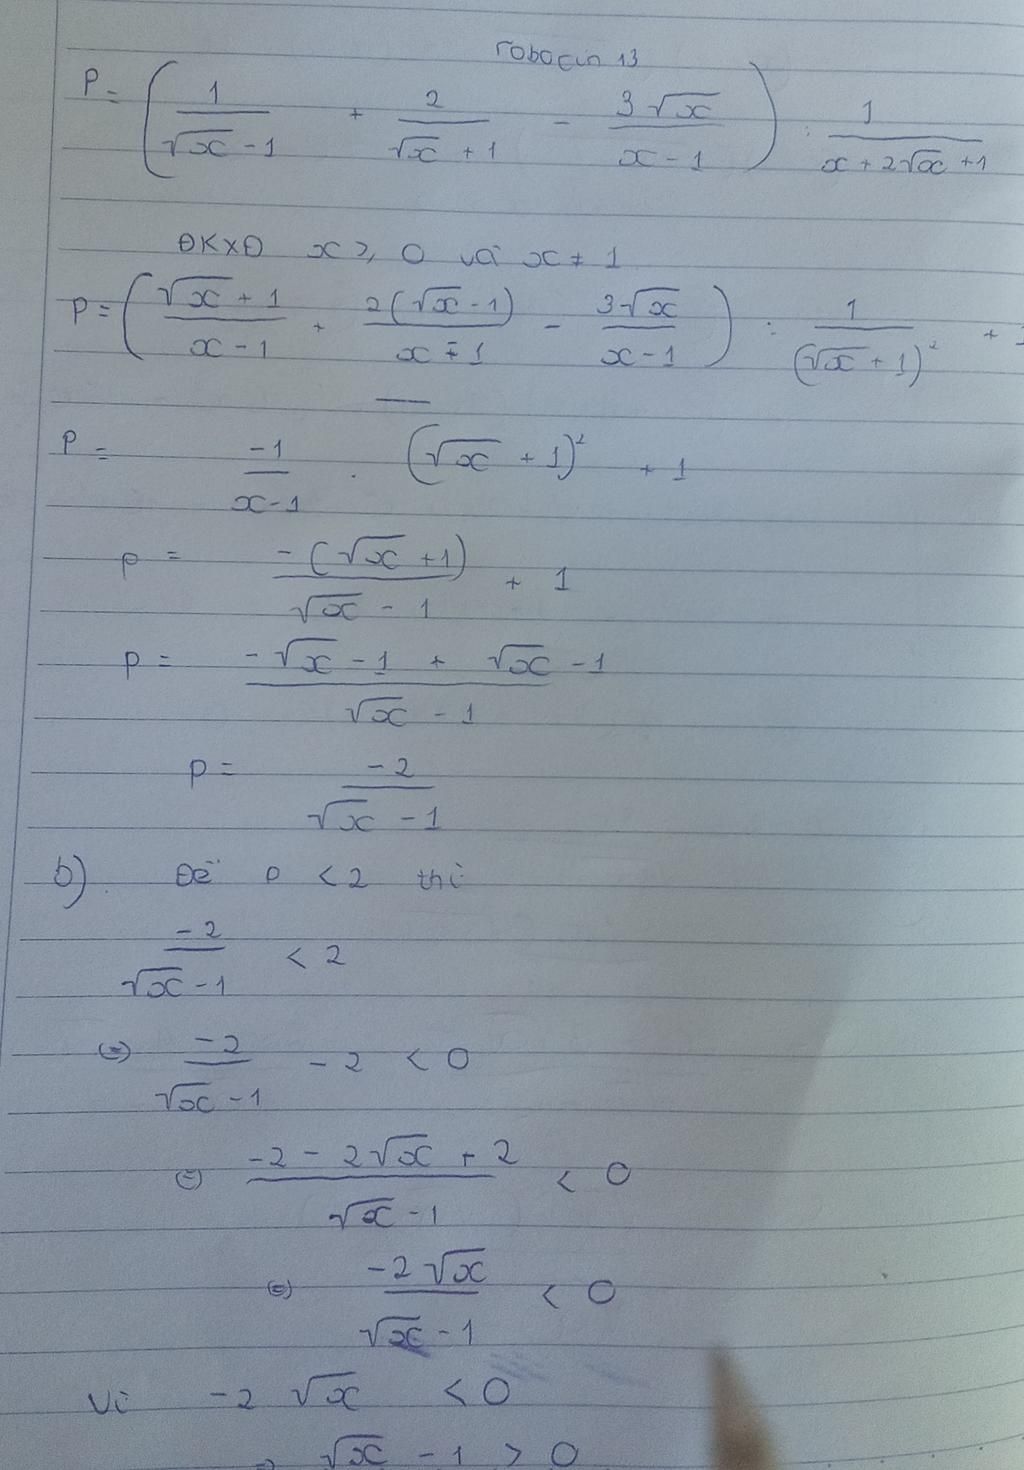 robocin 13
P = ( 1/(√x - 1) + 2/(√x + 1) - 3√x/(x - 1) ) : 1/(x + 2√x + 1)
ĐKXĐ x ≥ 0 và x ≠ 1
P = ( (√x + 1)/(x - 1) + 2(√x - 1)/(x - 1) - 3√x/(x - 1) ) : 1/(√x + 1)² +
P = -1/(x - 1) . (√x + 1)² + 1
P = -(√x + 1)/(√x - 1) + 1
P = (-√x - 1 + √x - 1)/(√x - 1)
P = -2/(√x - 1)
b) Để P < 2 thì
-2/(√x - 1) < 2
(=) -2/(√x - 1) - 2 < 0
(=) (-2 - 2√x + 2)/(√x - 1) < 0
(=) -2√x/(√x - 1) < 0
Vì -2√x < 0
√x - 1 > 0